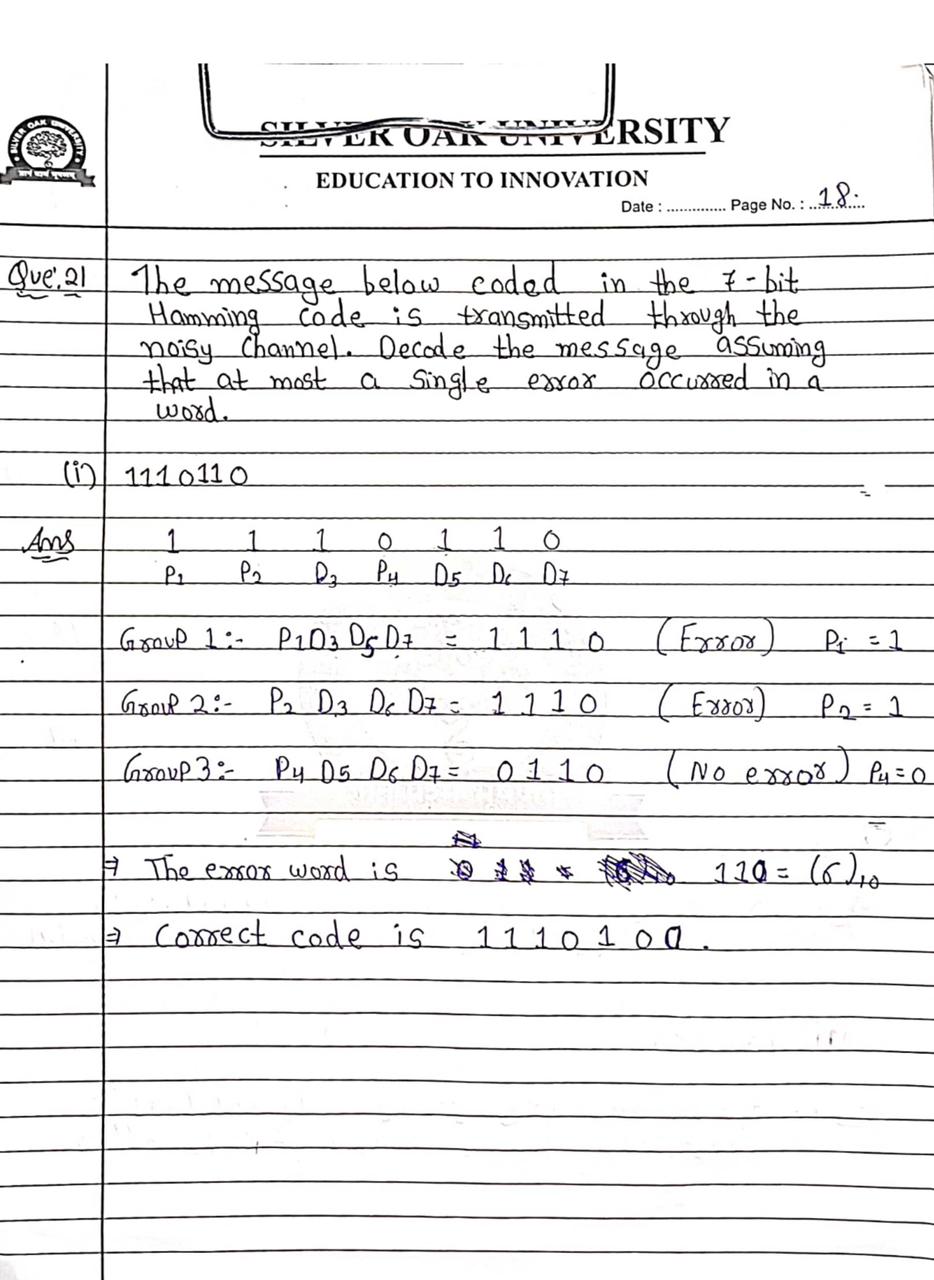 SILVER OAK UNIVERSITY
EDUCATION TO INNOVATION
Date : .............. Page No. : ..18..
Que.21 The message below coded in the 7-bit
Hamming code is transmitted through the
noisy Channel. Decode the message assuming
that at most a single error occurred in a
word.
(i) 1110110
Ans 1 1 1 0 1 1 0
P1 P2 D3 P4 D5 D6 D7
Group 1:- P1D3 D5 D7 = 1 1 1 0 (Error) P1 = 1
Group 2:- P2 D3 D6 D7 = 1 1 1 0 (Error) P2 = 1
Group 3:- P4 D5 D6 D7 = 0 1 1 0 (No error) P4 = 0
⇒ The error word is 110 = (6)10
⇒ Correct code is 1110100.